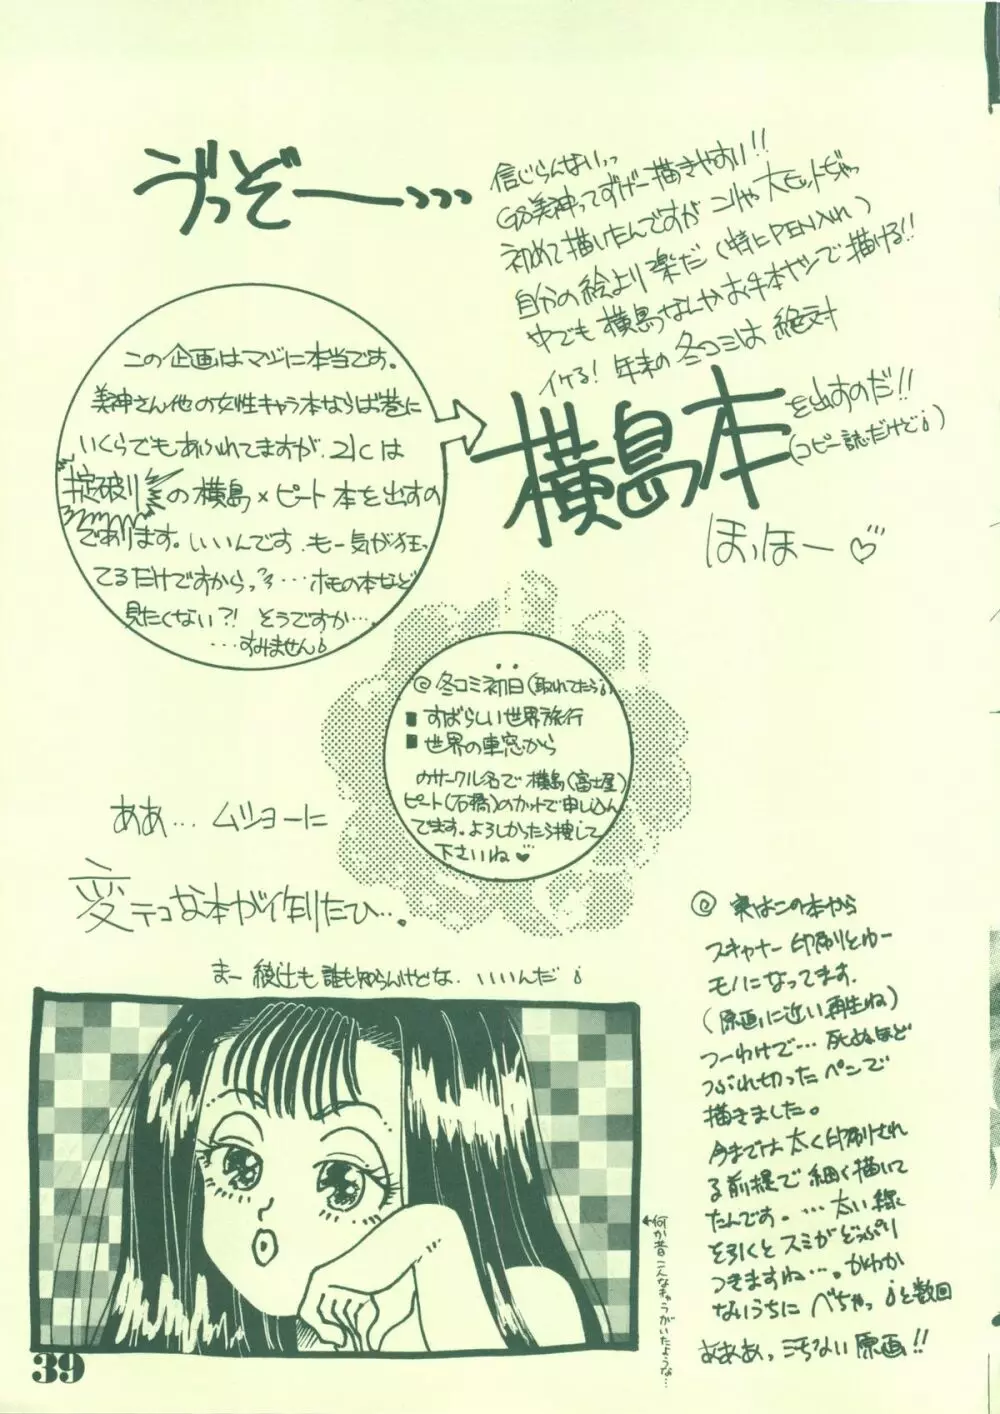 う゛っぞー、、、
信じらんないっっ
GS美神ってすげー描きやすい!!
初めて描いたんですがこりゃ大ヒットぢゃっ
自分の絵より楽だ(特にPEN入れ)
中でも横島なんかお手本ナシで描ける!!
イケる!年末の冬コミは絶対
横島本を出すのだ!!
(コピー誌だけど)
ほっほー♡
この企画はマジに本当です。
美神さん他の女性キャラ本ならば巷に
いくらでもあふれてますが、21Cは
掟破りの横島×ピート本を出すの
であります。いいんです、もー気が狂っ
てるだけですからっ…ホモの本など
見たくない?!そうですか…。
…すみません
◎冬コミ初日(取れてたら)
■すばらしい世界旅行
■世界の車窓から
のサークル名で横島(富士屋)
ピート(石橋)のカットで申し込ん
でます。よろしかったら捜して
下さいね♥
ああ…ムショーに
変テコな本が作りたひ…。
まー綾辻も誰も知らんけどな、いいんだ
◎実はこの本から
スキャナー印刷とゆー
モノになってます。
(原画に近い再生ね)
つーわけで…死ぬほど
つぶれ切ったペンで
描きました。
今までは太く印刷され
る前提で細く描いて
たんです。…太い線
を引くとスミがどっぷり
つきますね…。かわか
ないうちにべちゃっと数回
あああっ汚ない原画!!
←何か昔こんなキャラがいたような…
39